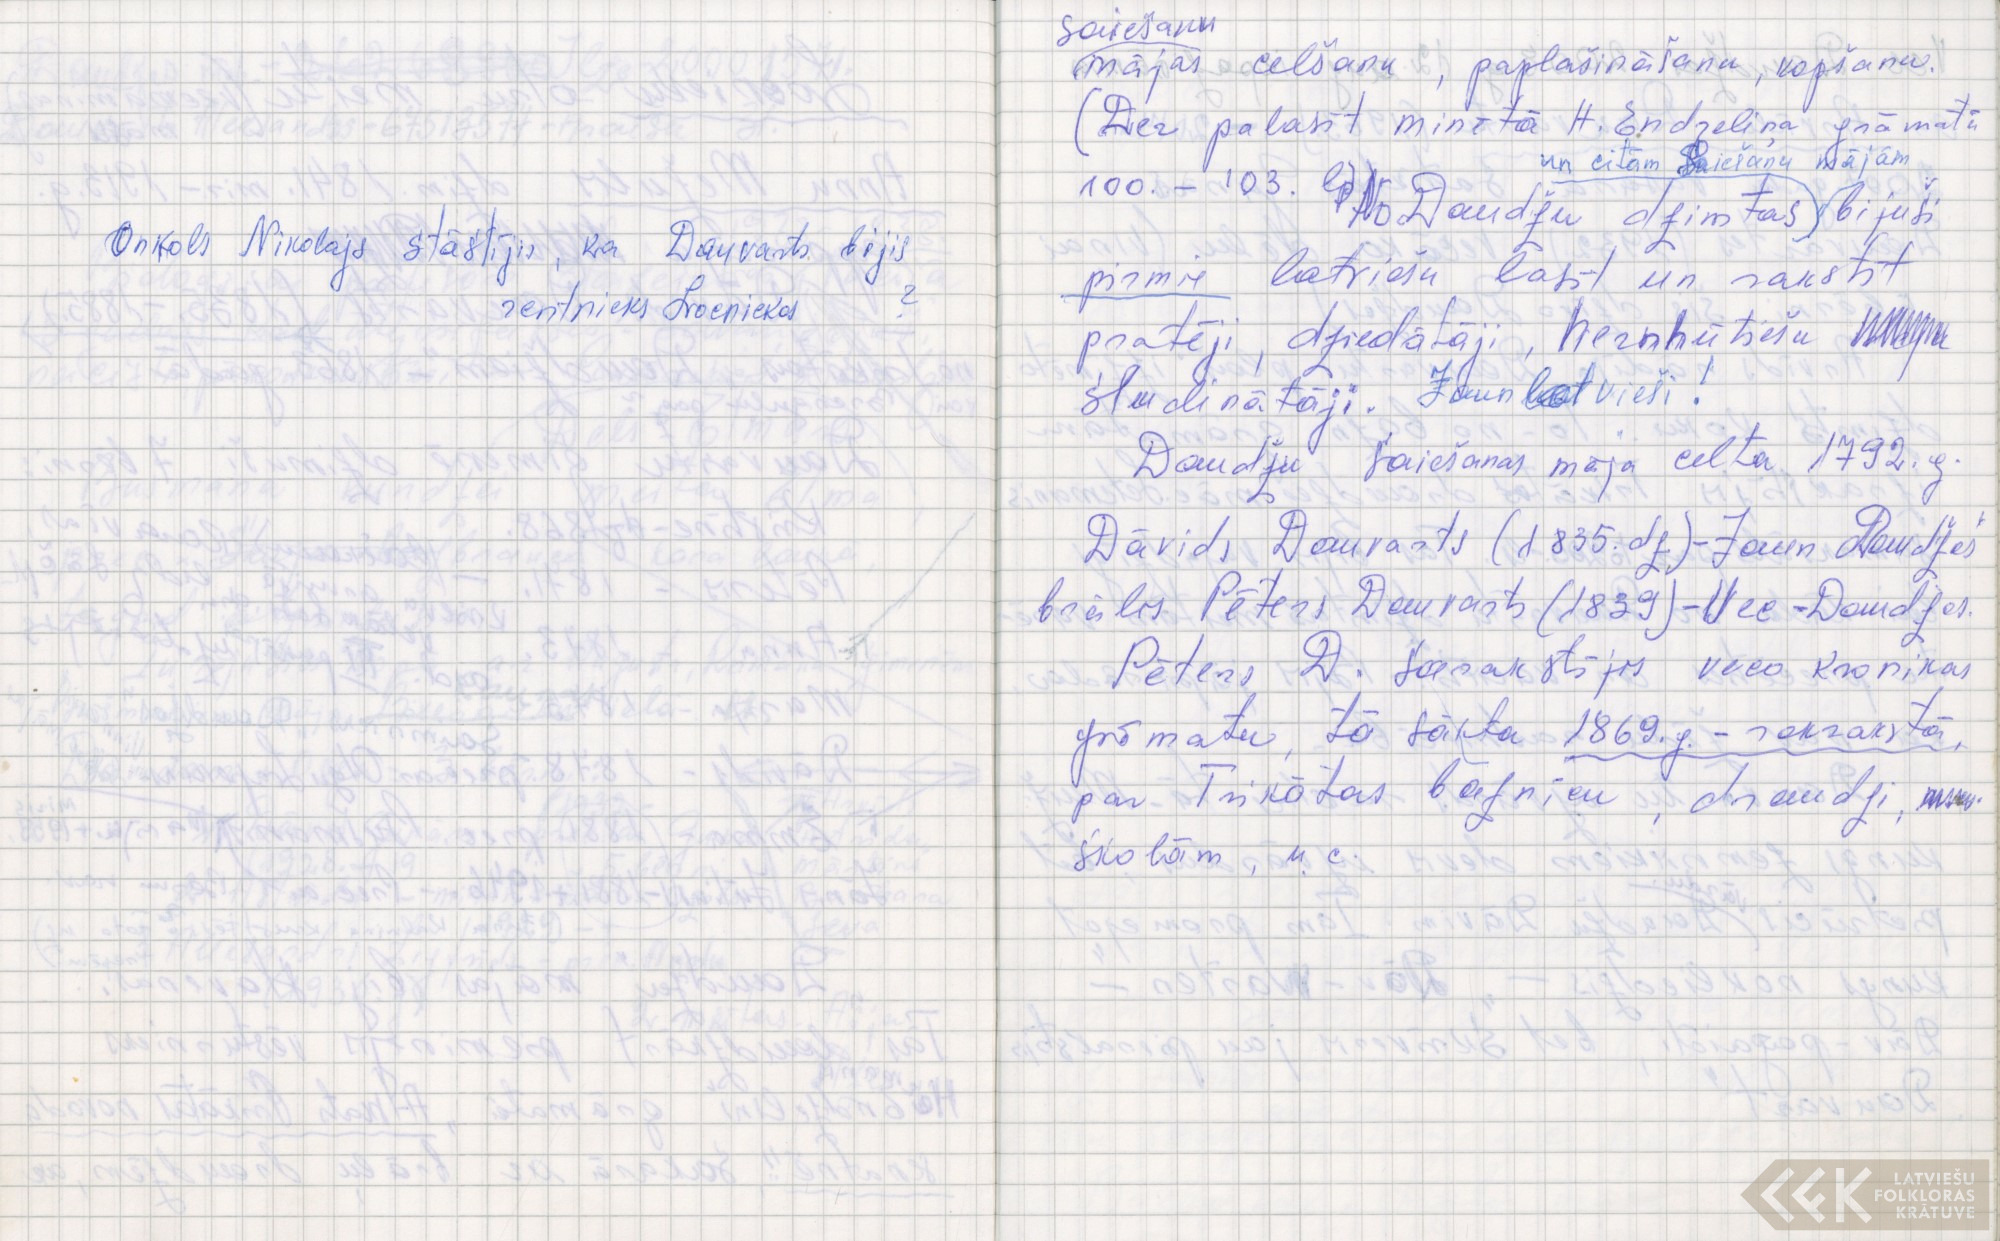 Onkols Nikolajs stāstījis, ka Dauvarts bijis
rentnieks Lroeniekos ?
saiešanu
mājas celšanu, paplašināšanu, kopšanu.
(Der palasīt minētā H. Endzeliņa grāmatu
un citām Saiešanu mājām
100. – 103. lp) No Daudžu dzimtas bijuši
pirmie latviešu lasīt un rakstīt
pratēji, dziedātāji, hernhūtiešu
sludinātāji. Jaunlatvieši!
Daudžu saiešanas māja celta 1792. g.
Dāvids Dauvarts (1835. dz.) – Jaun Daudžes
brālis Pēters Dauvarts (1839) – Vec-Daudžes.
Pēters D. sarakstījis veco kronikas
grāmatu, tā sākta 1869. g. – rokrakstā,
par Trikātas baznīcu, draudzi,
skolām, u.c.
LATVIEŠU
FOLKLORAS
KRĀTUVE